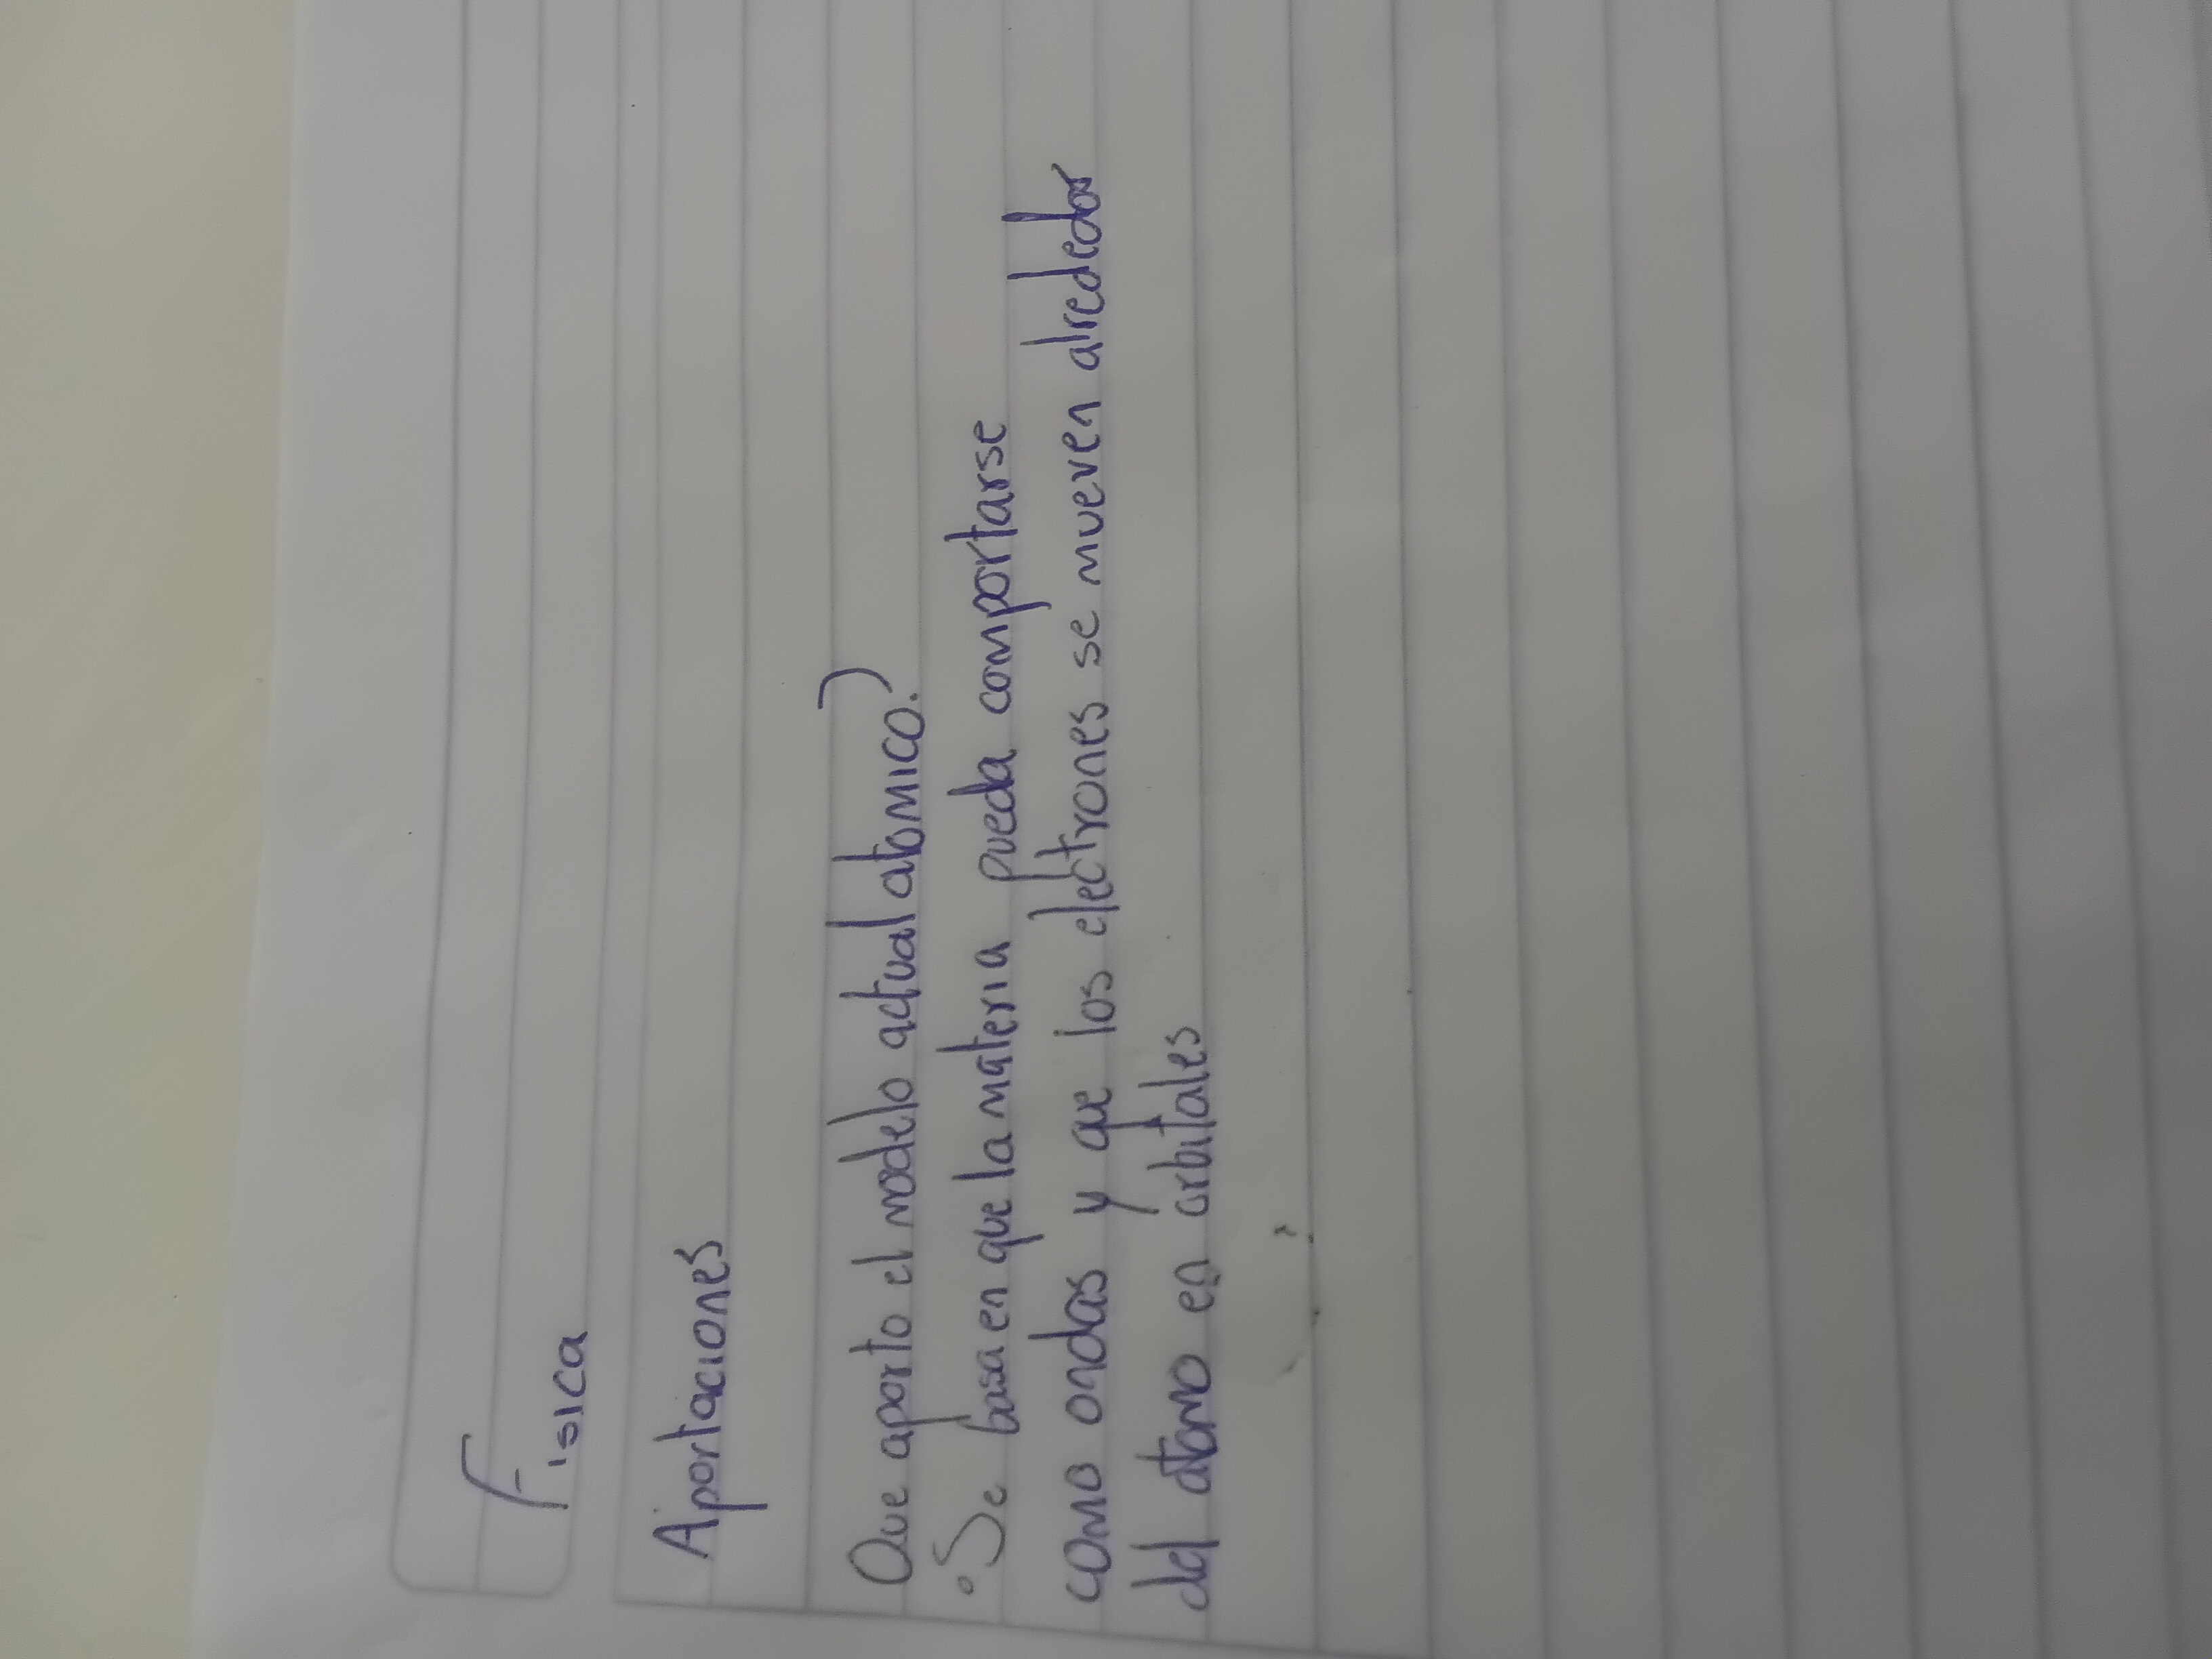 Fisica
Aportaciones
Que aporto el modelo actual atomico?
°Se basa en que la materia pueda comportarse
como ondas y que los electrones se mueven alrededor
del atomo en orbitales